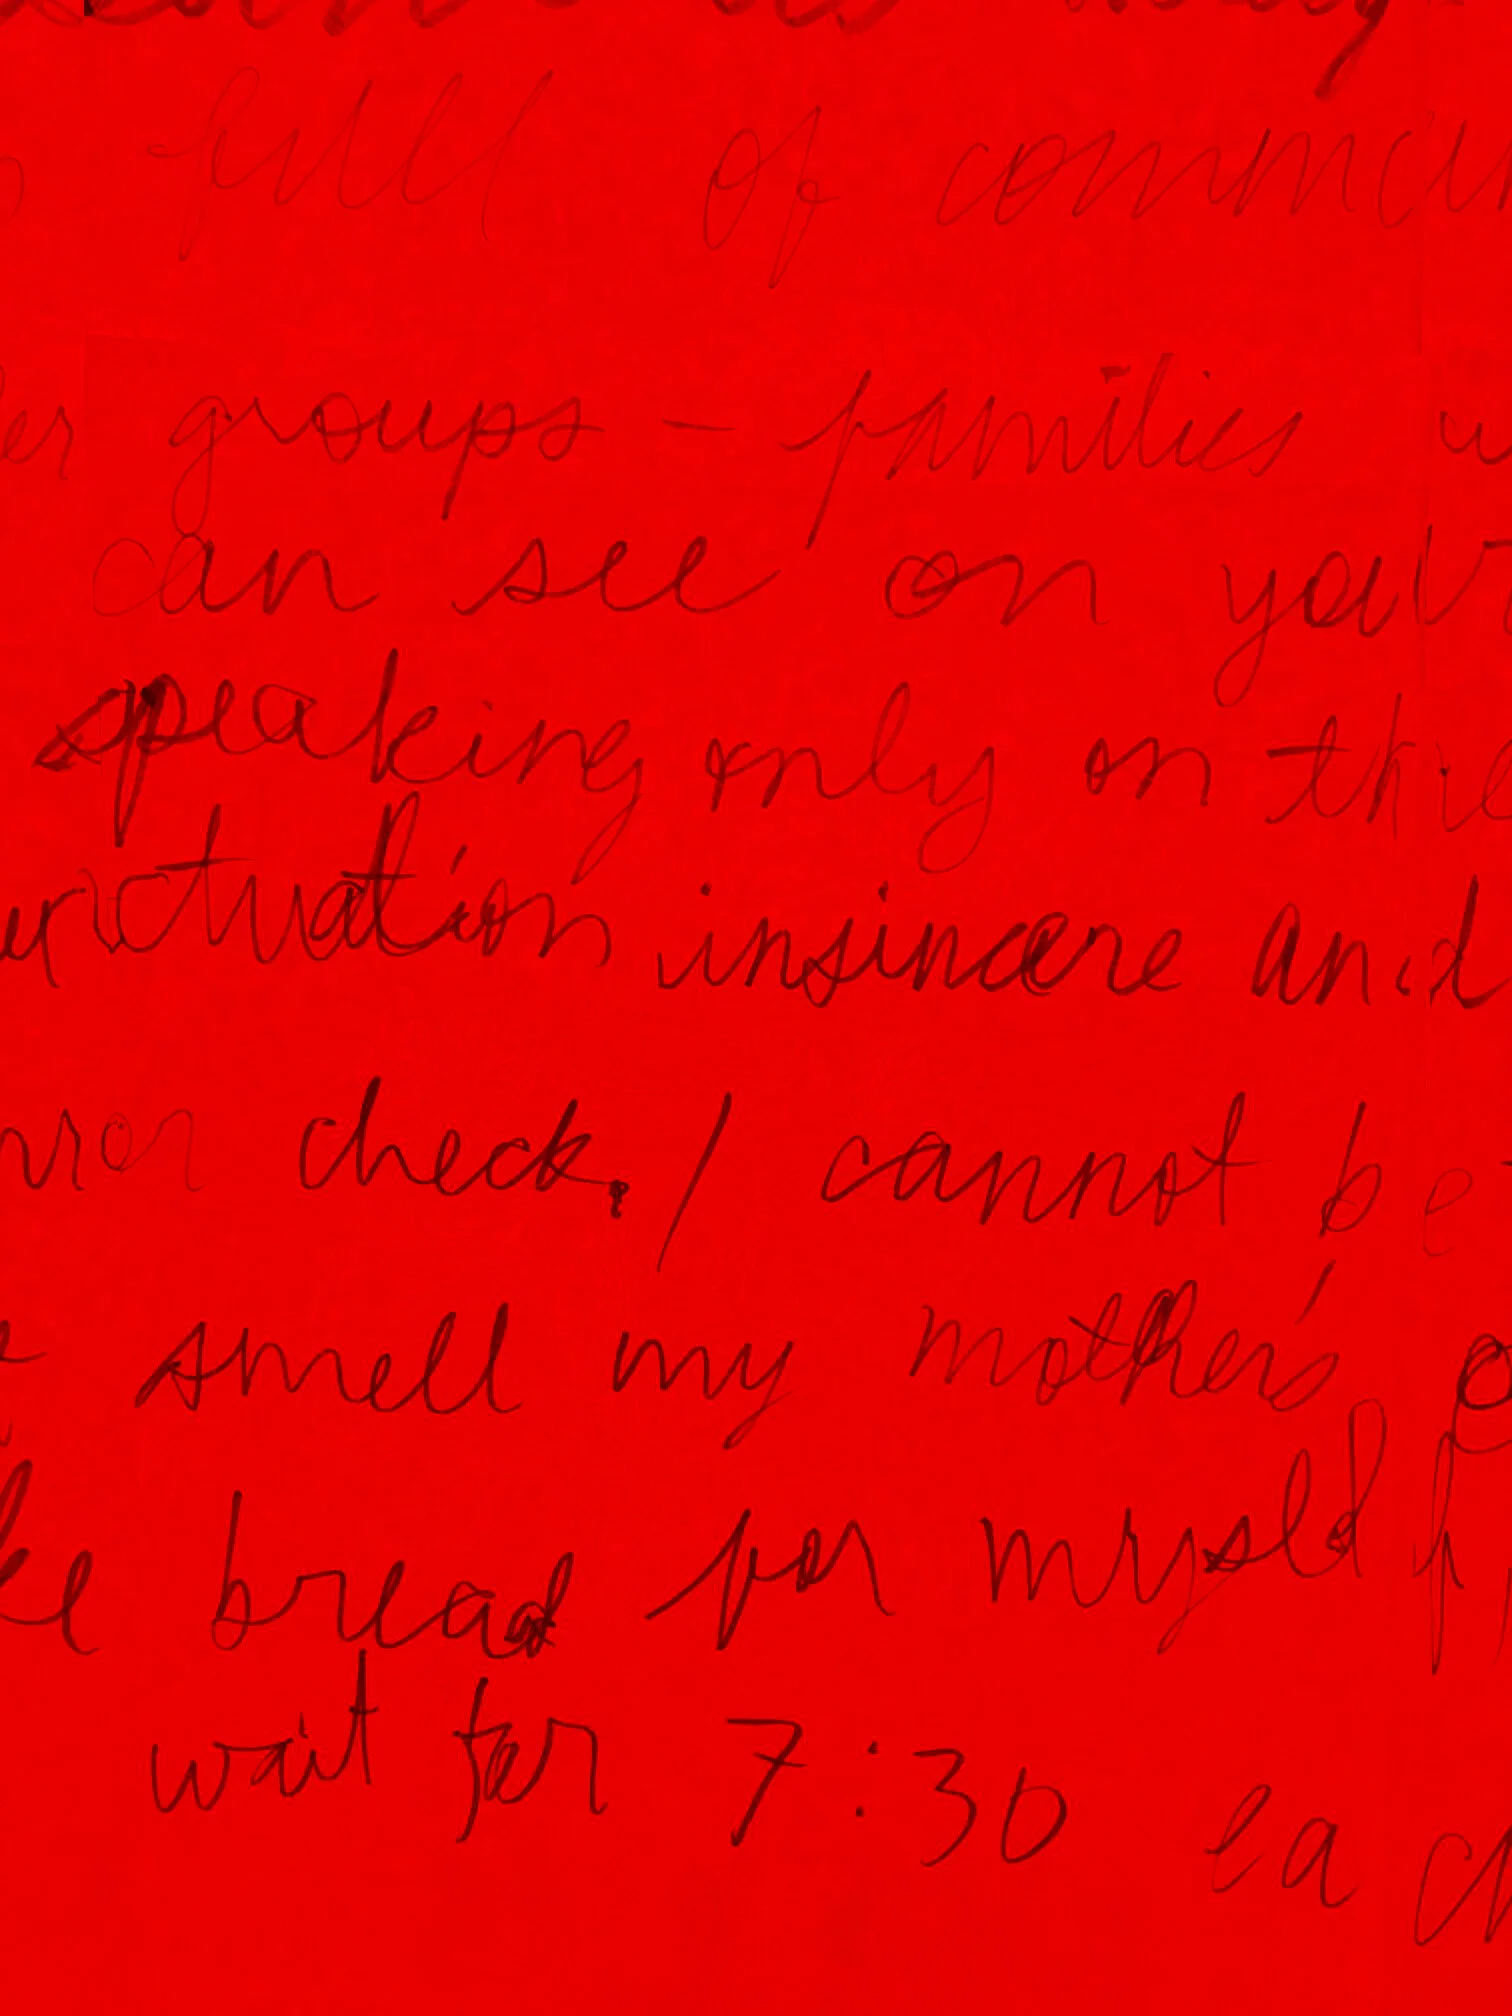 full of commun
er groups - families w
can see on your
speaking only on the
unctuation insincere and
rror check. / cannot be
smell my mother's
ke bread for myself
wait for 7:30 each